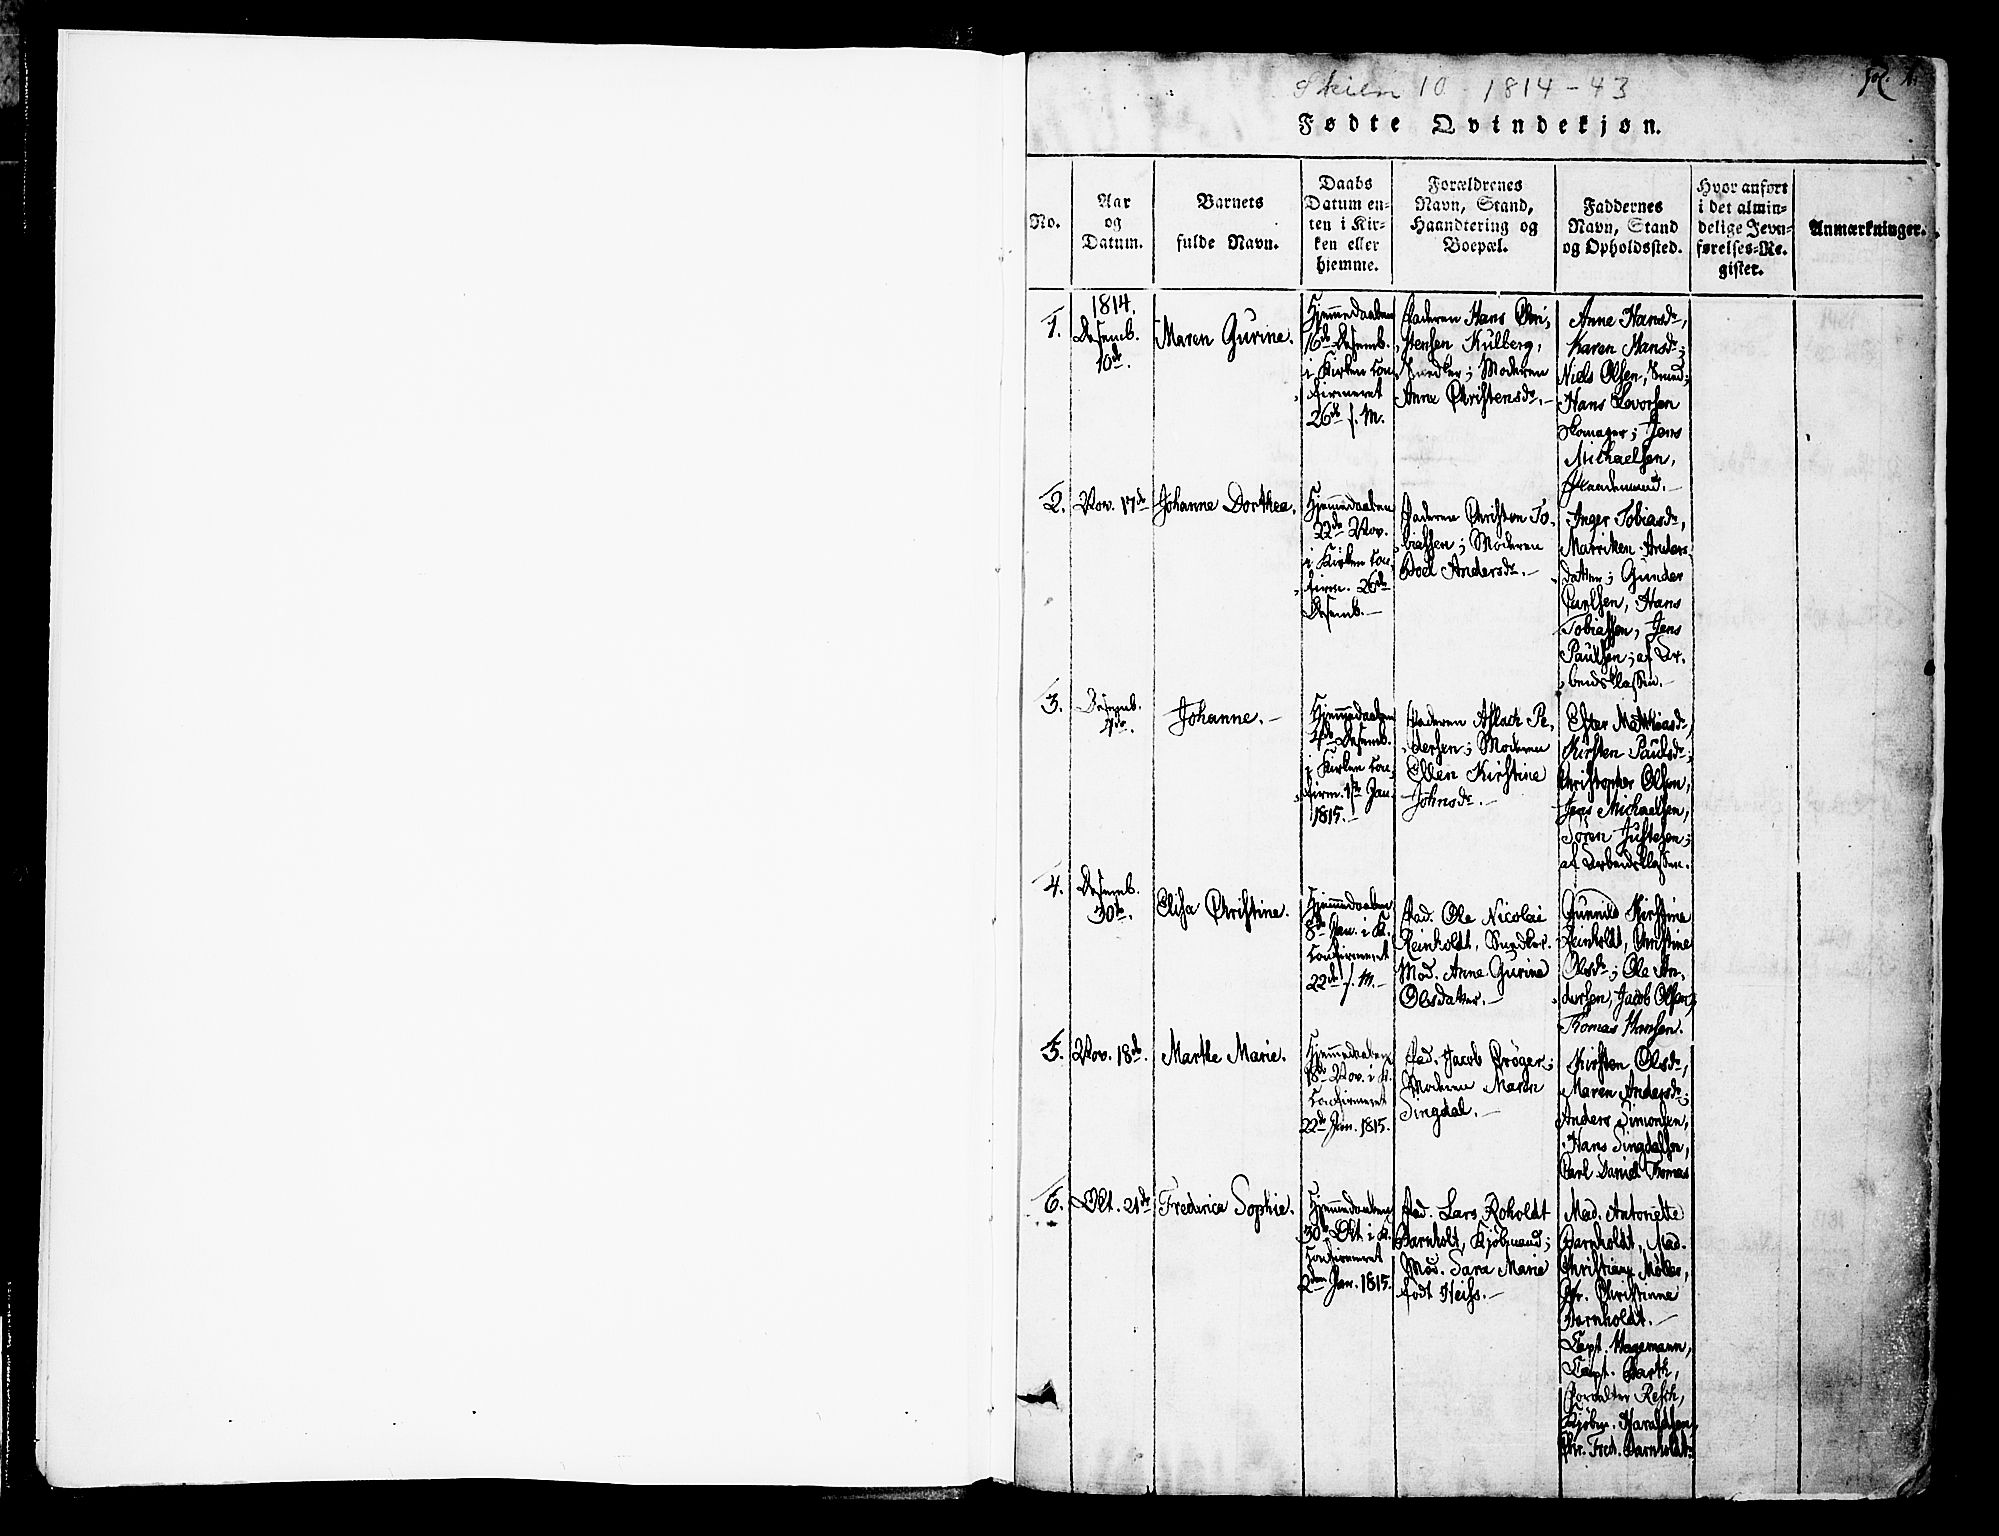 Skien 10 1814-43
Fol. 1.
Fødte Qvindekjøn.
No.
Aar
og
Datum.
Barnets
fulde Navn.
Daabs
Datum en-
ten i Kir-
ken eller
hjemme.
Forældrenes
Navn, Stand,
Haandtering og
Boepæl.
Faddernes
Navn, Stand
og Opholdssted.
Hvor anført
i det almin-
delige Jevn-
førelses-Re-
gister.
Anmærkninger.
1.
1814.
Desemb.
10de.
Maren Gurine.
Hjemmedaaben
16de Desemb.
i Kirken con-
firmeret
26de s. M.
Faderen Hans Chri-
stensen Kulberg,
Snedker; Moderen
Anne Christensdr.
Anne Hansdr,
Karen Hansdr;
Niels Olsen, Smed;
Hans Levorsen
Skomager; Jens
Michaelsen,
2.
Nov. 17de
Johanne Dorthea.
Hjemmedaaben
22de Nov.
i Kirken con-
firm. 26de
Desemb.
Faderen Christen To-
biassen; Moderen
Boel Andersdr.
Inger Tobiasdr,
Marriken Anders-
datter; Gunder
Carlsen, Hans
Tobiassen, Jens
Paulsen; af Ar-
beidsklassen.
3.
Desemb.
4de.
Johanne.
Hjemmedaaben
4de Desemb.
i Kirken con-
firm. 1ste Jan.
1815.
Faderen Aslach Pe-
dersen; Moderen
Ellen Kirstine
Johnsdr.
Ester Mathiasdr,
Kirsten Paulsdr;
Christopher Olsen,
Jens Michaelsen,
Søren Justesen;
af Arbeidsklassen.
4.
Desemb.
30te.
Elisa Christine.
Hjemmedaaben
8de Jan. i K.
confirmeret
22de s. M.
Fad. Ole Nicolai
Reinholdt, Snedker.
Mod. Anne Gurine
Olsdatter.
Gunnild Kirstine
Reinholdt, Christine
Olsdr; Ole An-
dersen, Jacob Olsen,
Thomas Hansen.
5.
Nov. 18de.
Marthe Marie.
Hjemmedaaben
18de Nov. i K.
confirmeret
22de Jan. 1815.
Fad. Jacob Prøger;
Moderen Maren
Singdal.
Kirsten Olsdr,
Maren Andersdr;
Anders Simonsen,
Hans Singdalsen,
Carl Daniel Thomas
6.
Okt. 21de
Frederica Sophie.
Hjemmedaaben
30te Okt. i K.
Confirmeret
2den Jan. 1815.
Fad. Lars Roholdt
Barnholt, Kjøbmand;
Mod. Sara Marie
født Heiss.
Mad. Antonette
Barnholdt, Mad.
Christiane Møller,
Jfr. Christinne
Barnholdt.
Capt. Hagemann,
Capt. Barth,
Forvalter Resch,
Kjøbm. Haraldsen,
Chr. Fred. Barnholdt.